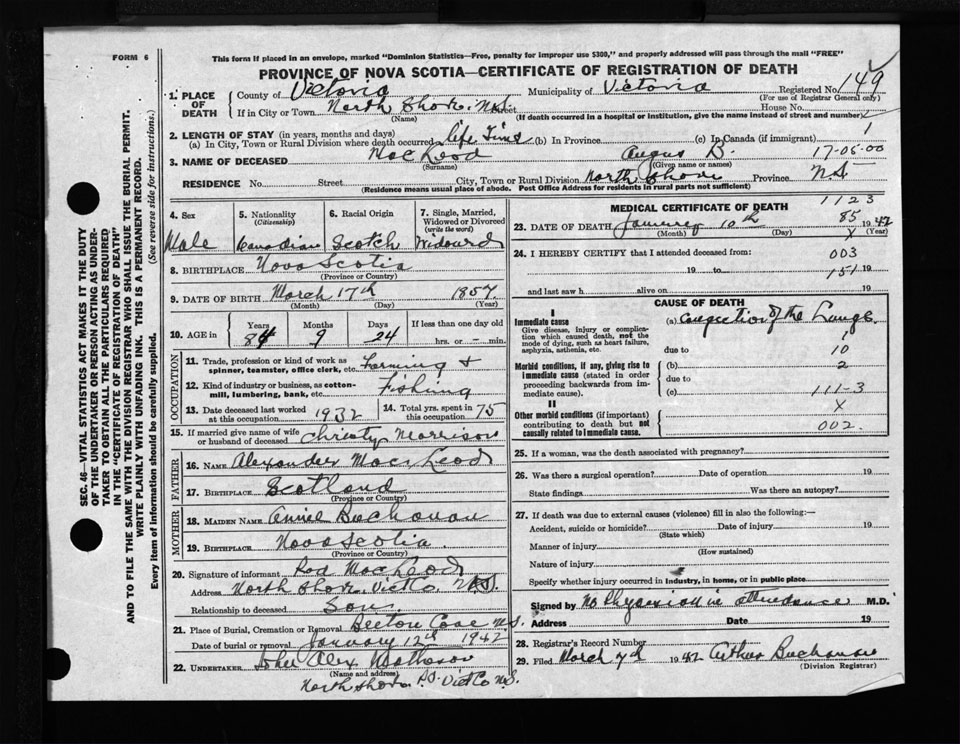 FORM 6
This form if placed in an envelope, marked "Dominion Statistics—Free, penalty for improper use $300," and properly addressed will pass through the mail "FREE"
PROVINCE OF NOVA SCOTIA—CERTIFICATE OF REGISTRATION OF DEATH
SEC. 46—VITAL STATISTICS ACT MAKES IT THE DUTY
OF THE UNDERTAKER OR PERSON ACTING AS UNDER-
TAKER TO OBTAIN ALL THE PARTICULARS REQUIRED
IN THE "CERTIFICATE OF REGISTRATION OF DEATH"
AND TO FILE THE SAME WITH THE DIVISION REGISTRAR WHO SHALL ISSUE THE BURIAL PERMIT.
WRITE PLAINLY WITH UNFADING INK. THIS IS A PERMANENT RECORD.
Every item of information should be carefully supplied. (See reverse side for instructions.)
1. PLACE OF DEATH County of Victoria Municipality of Victoria Registered No. 149
(For use of Registrar General only)
If in City or Town North Shore N.S. Street House No.
(Name) (If death occurred in a hospital or institution, give the name instead of street and number)
2. LENGTH OF STAY (in years, months and days)
(a) In City, Town or Rural Division where death occurred life Time (b) In Province (c) In Canada (if immigrant) 1
3. NAME OF DECEASED MacLeod Angus B. 17-05-00
(Surname) (Given name or names)
RESIDENCE No. Street City, Town or Rural Division North Shore Province N.S.
(Residence means usual place of abode. Post Office Address for residents in rural parts not sufficient)
4. Sex
Male
5. Nationality
(Citizenship)
Canadian
6. Racial Origin
Scotch
7. Single, Married,
Widowed or Divorced
(write the word)
Widowed
8. BIRTHPLACE Nova Scotia
(Province or Country)
9. DATE OF BIRTH March 17th 1857
(Month) (Day) (Year)
10. AGE in Years Months Days If less than one day old
84 9 24 hrs. or – min.
OCCUPATION
11. Trade, profession or kind of work as
spinner, teamster, office clerk, etc. Farming &
12. Kind of industry or business, as cotton-
mill, lumbering, bank, etc. Fishing
13. Date deceased last worked
at this occupation 1932
14. Total yrs. spent in
this occupation 75
15. If married give name of wife
or husband of deceased Christy Morrison
FATHER
16. NAME Alexander MacLeod
17. BIRTHPLACE Scotland
(Province or Country)
MOTHER
18. MAIDEN NAME Annie Buchanan
19. BIRTHPLACE Nova Scotia
(Province or Country)
20. Signature of informant Rod MacLeod
Address North Shore Vict Co. N.S.
Relationship to deceased Son
21. Place of Burial, Cremation or Removal Cove N.S.
Date of burial or removal January 12th 1942
22. UNDERTAKER John Alex Matheson
(Name and address)
North Shore Vict Co N.S.
MEDICAL CERTIFICATE OF DEATH 1123
23. DATE OF DEATH January 10th 85 1942
(Month) (Day) X (Year)
24. I HEREBY CERTIFY that I attended deceased from: 003
19 to 151 19
and last saw h alive on 19
CAUSE OF DEATH
I
Immediate cause
Give disease, injury or complica-
tion which caused death, not the
mode of dying, such as heart failure,
asphyxia, asthenia, etc.
(a) of the Lungs
due to 10
Morbid conditions, if any, giving rise to
immediate cause (stated in order
proceeding backwards from im-
mediate cause).
(b) 2
due to
(c) 111-3
II
X
Other morbid conditions (if important)
contributing to death but not
causally related to immediate cause. 002
25. If a woman, was the death associated with pregnancy?
26. Was there a surgical operation? Date of operation 19
State findings Was there an autopsy?
27. If death was due to external causes (violence) fill in also the following:—
Accident, suicide or homicide? Date of injury 19
(State which)
Manner of injury
(How sustained)
Nature of injury
Specify whether injury occurred in industry, in home, or in public place
Signed by No Physician in attendance M.D.
Address Date 19
28. Registrar's Record Number
29. Filed March 7th 1942 Arthur Buchanan
(Division Registrar)